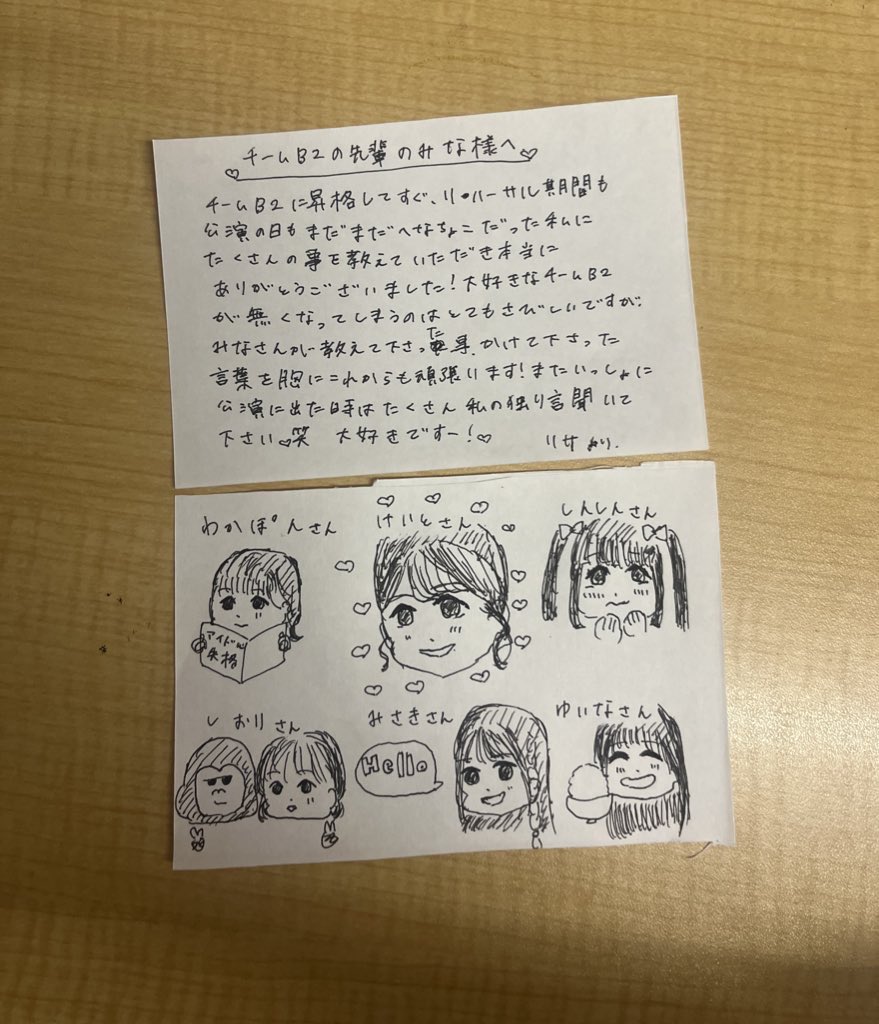 チームB2の先輩のみな様へ
チームB2に昇格してすぐ、リハーサル期間も
公演の日もまだまだへなちょこだった私に
たくさんの事を教えていただき本当に
ありがとうございました!大好きなチームB2
が無くなってしまうのはとてもさびしいですが、
みなさんが教えて下さった事、かけて下さった
言葉を胸にこれからも頑張ります!またいっしょに
公演に出た時はたくさん私の独り言聞いて
下さい♡笑 大好きですー!♡ リサより.
わかぽんさん
けいとさん
しんしんさん
アイドル
失格
しおりさん
みさきさん
ゆいなさん
Hello